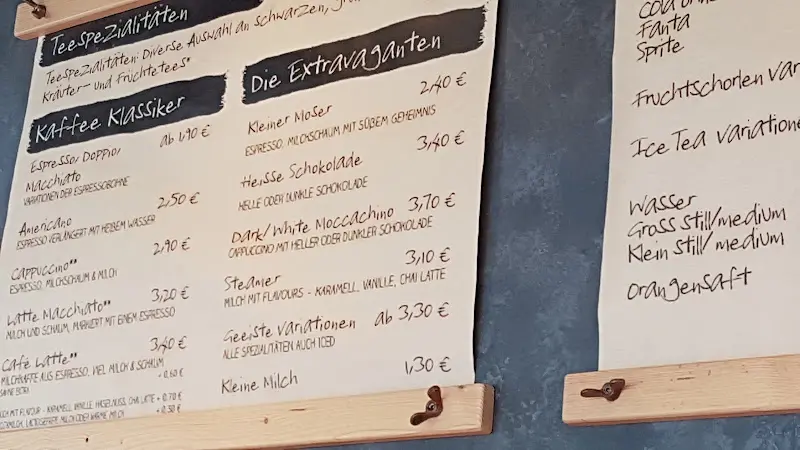 Teespezialitäten
Teespezialitäten: Diverse Auswahl an schwarzen,
Kräuter- und Früchtetees*
Kaffee Klassiker
Espresso/Doppio/ ab 1,90 €
Macchiato
VARIATIONEN DER ESPRESSOBOHNE
Americano 2,50 €
ESPRESSO VERLÄNGERT MIT HEIßEM WASSER
Cappuccino** 2,90 €
ESPRESSO, MILCHSCHAUM & MILCH
Latte Macchiato** 3,20 €
MILCH UND SCHAUM, MARKIERT MIT EINEM ESPRESSO
Café Latte** 3,40 €
MILCHKAFFEE AUS ESPRESSO, VIEL MILCH & SCHAUM
+ 0,60 €
MIT FLAVOUR - KARAMELL, VANILLE, HASELNUSS, CHAI LATTE + 0,70 €
LACTOSEFREIE MILCH ODER WARME MILCH + 0,30 €
Die Extravaganten
Kleiner Moser 2,40 €
ESPRESSO, MILCHSCHAUM MIT SÜßEM GEHEIMNIS
Heisse Schokolade 3,40 €
HELLE ODER DUNKLE SCHOKOLADE
Dark/White Moccachino 3,70 €
CAPPUCCINO MIT HELLER ODER DUNKLER SCHOKOLADE
Steamer 3,10 €
MILCH MIT FLAVOURS - KARAMELL, VANILLE, CHAI LATTE
Geeiste Variationen ab 3,30 €
ALLE SPEZIALITÄTEN AUCH ICED
Kleine Milch 1,30 €
Fanta
Sprite
Fruchtschorlen
Ice Tea Variatione
Wasser
Gross still/medium
Klein still/medium
Orangensaft